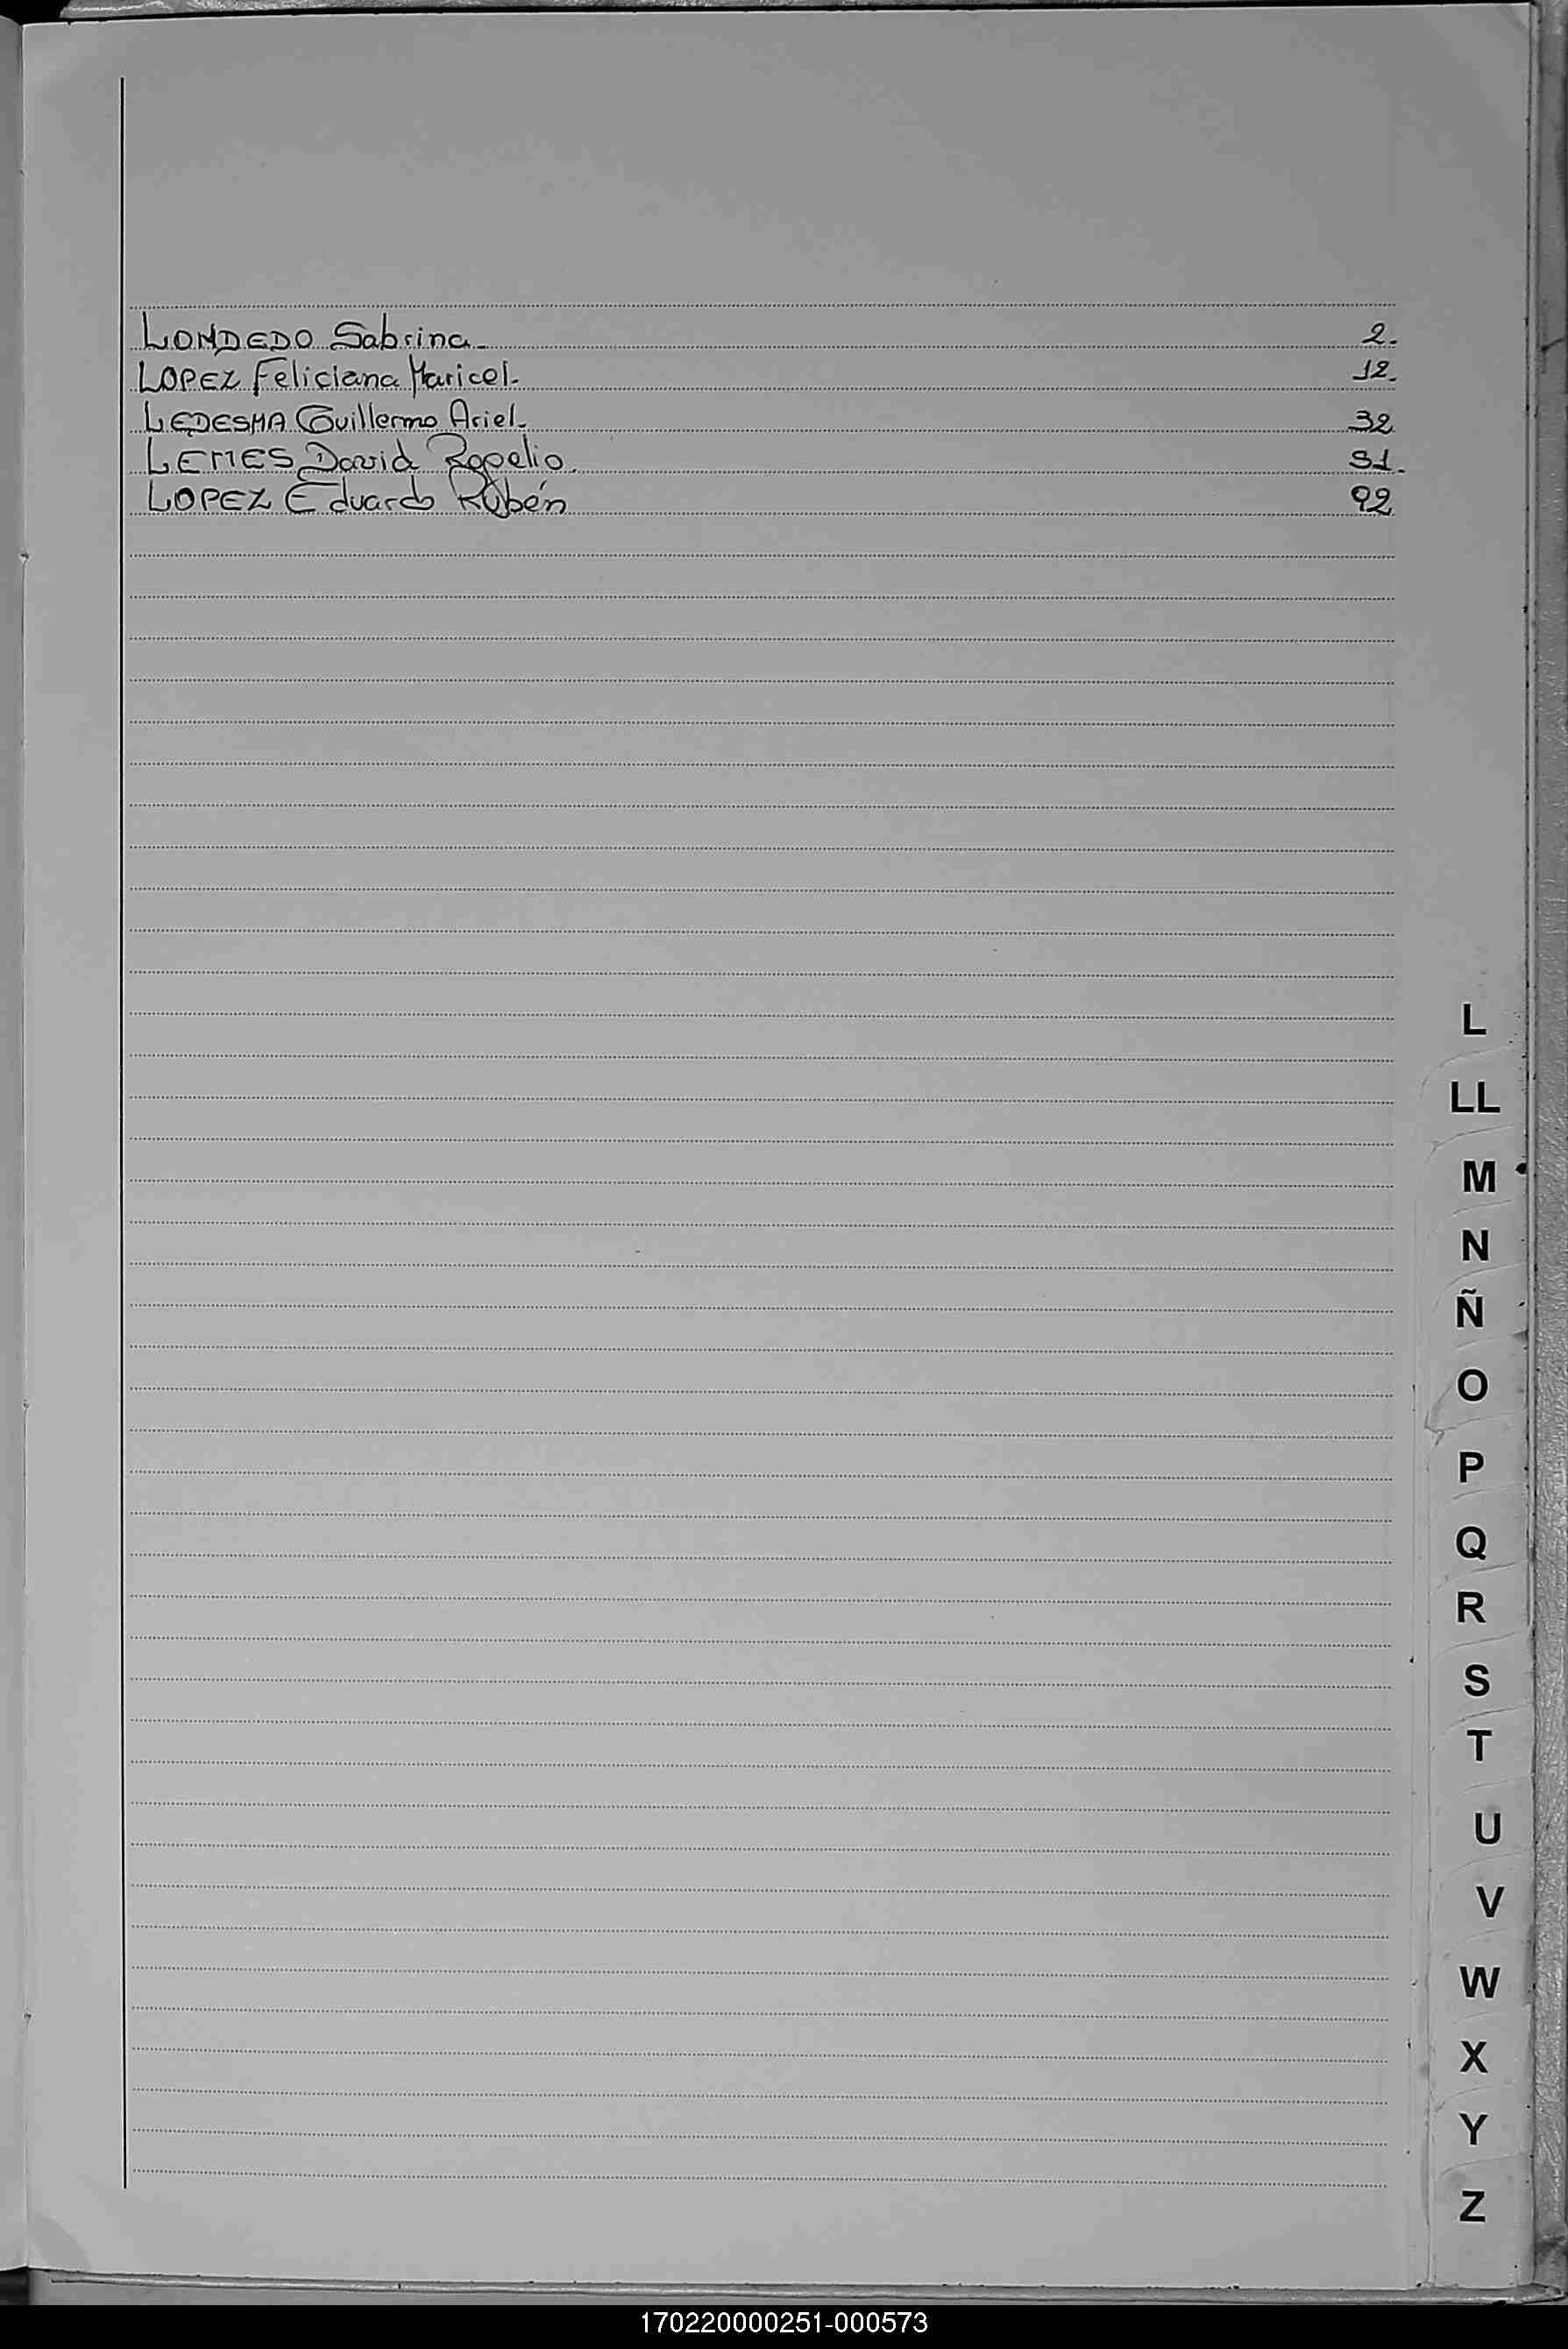 LONDEDO Sabrina 2.
LOPEZ Feliciana Maricel. 12.
LEDESMA Guillermo Ariel. 32
LEMES David Rogelio. 51.
LOPEZ Eduardo Rubén 92
L
LL
M
N
Ñ
O
P
Q
R
S
T
U
V
W
X
Y
Z
170220000251-000573